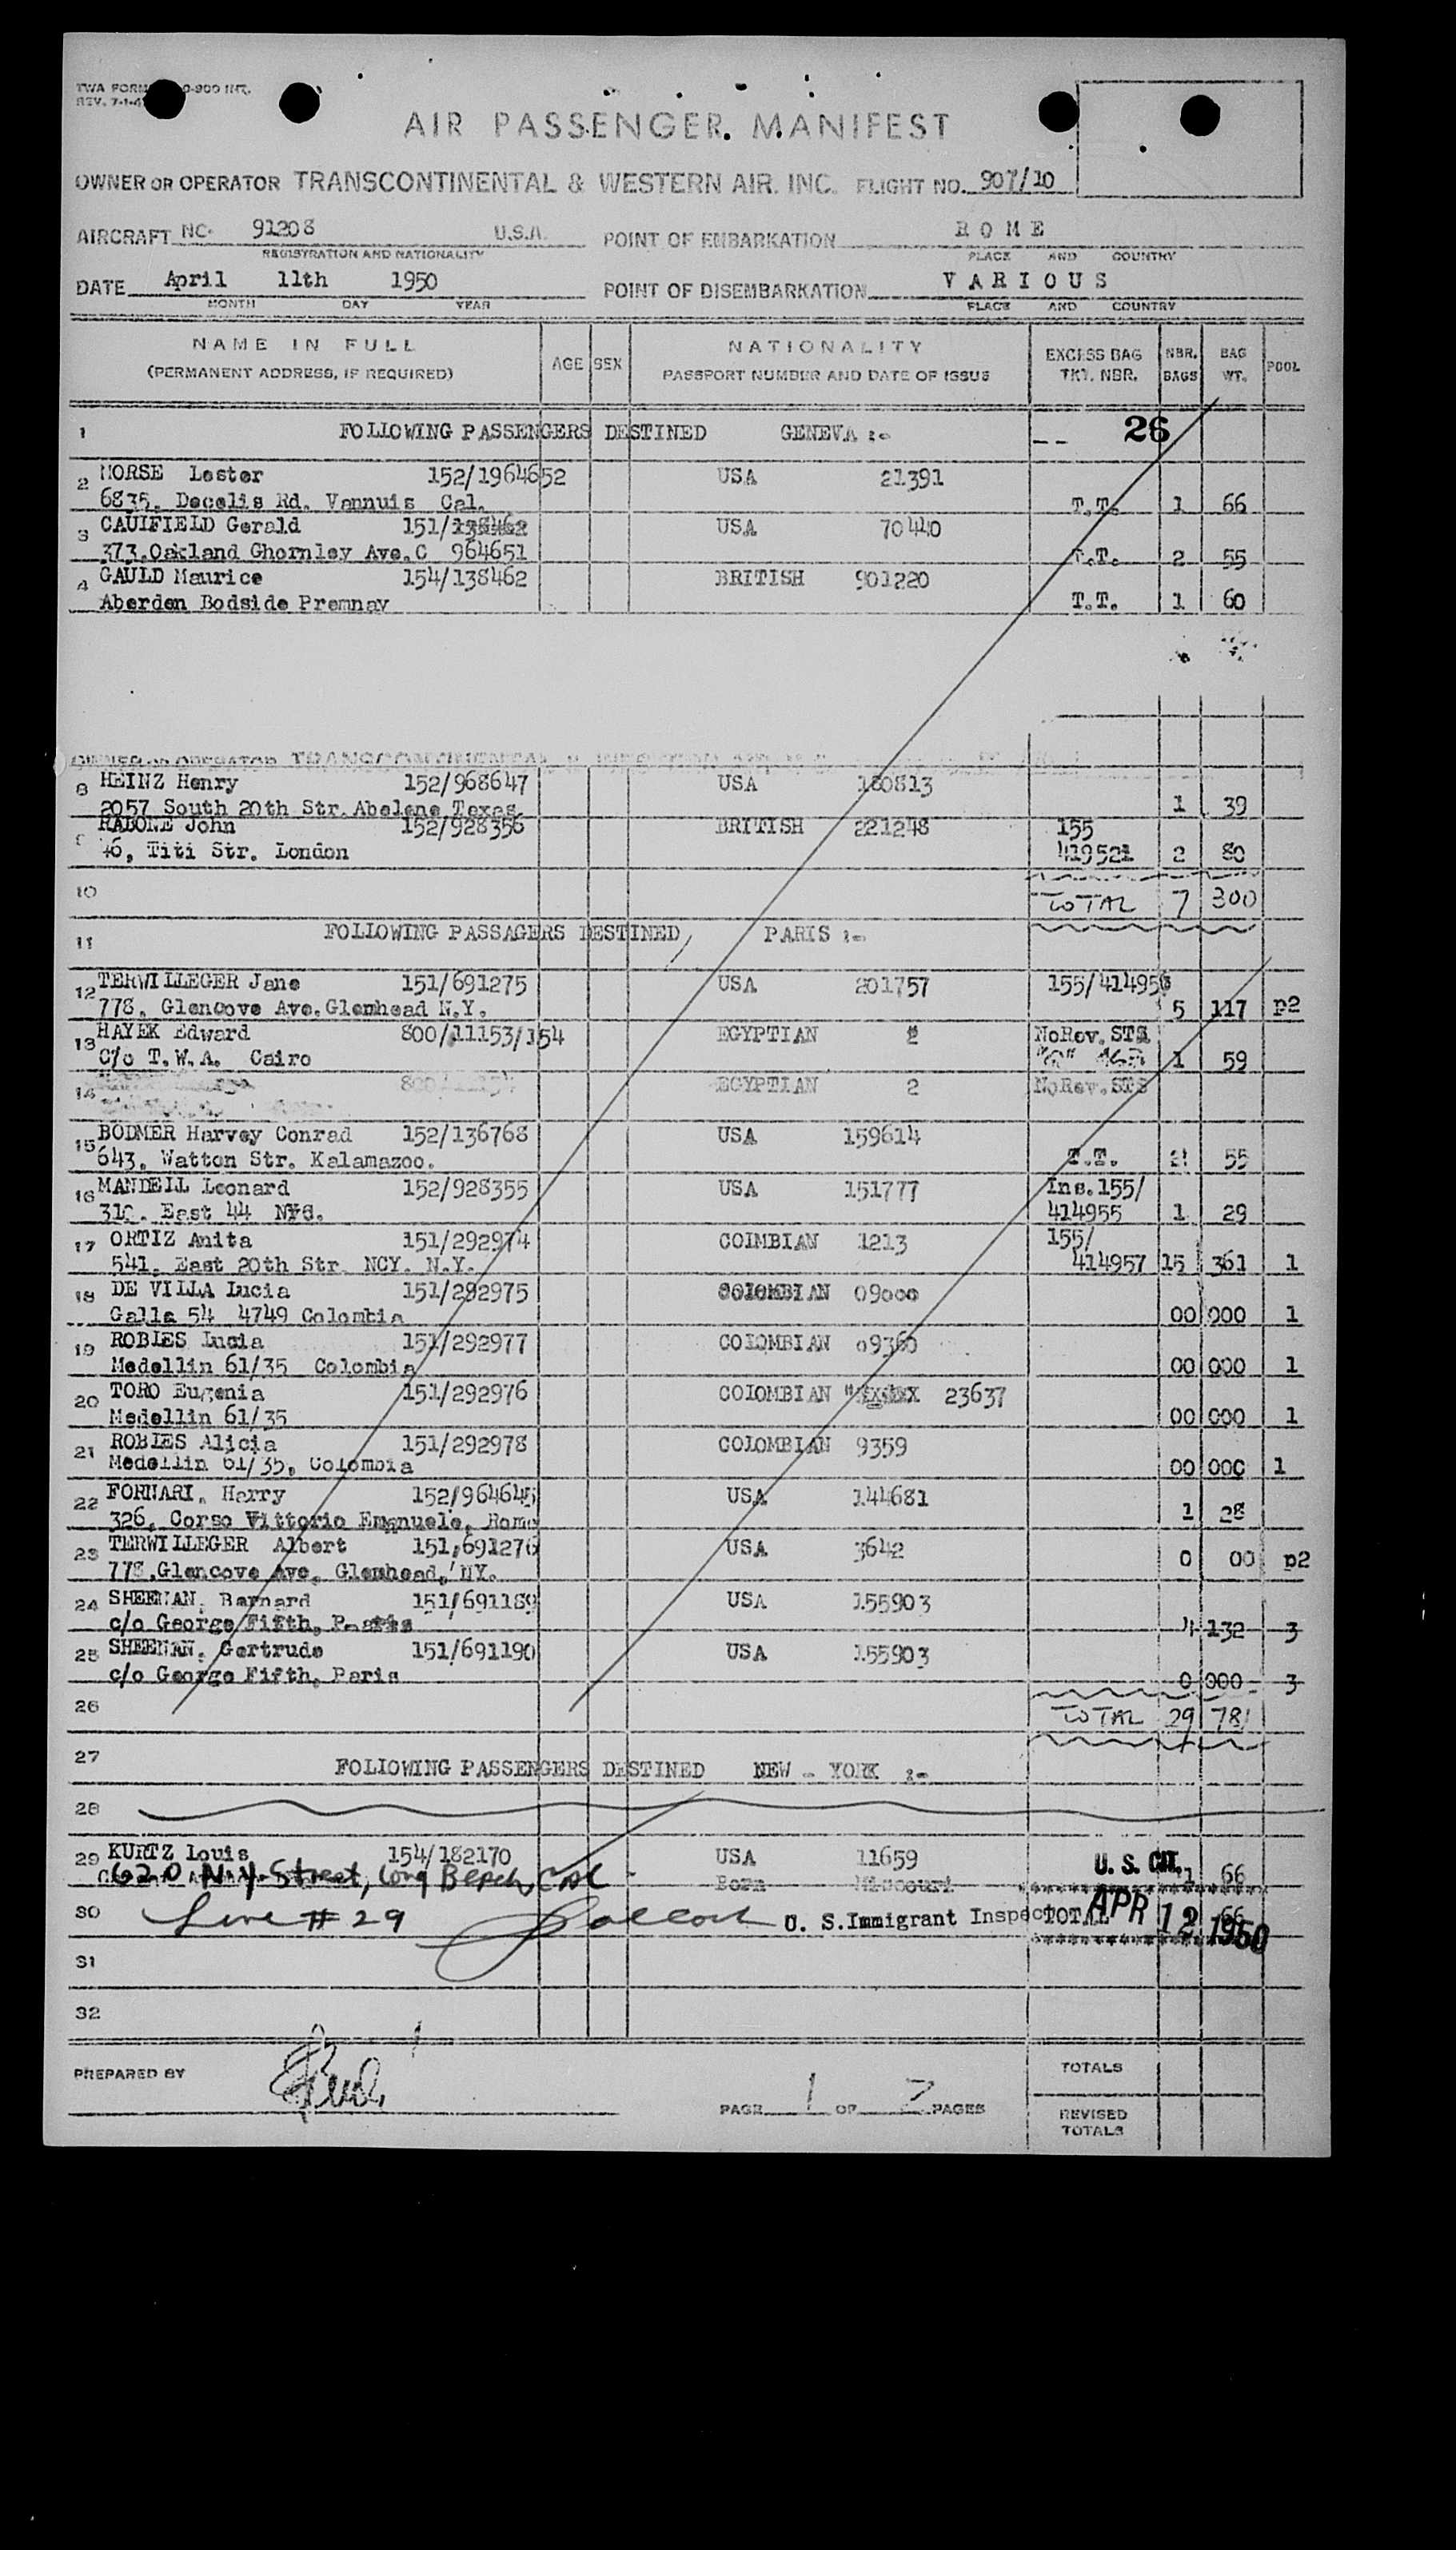 AIR PASSENGER MANIFEST
OWNER OR OPERATOR TRANSCONTINENTAL & WESTERN AIR. INC. FLIGHT NO. 907/10
AIRCRAFT NC- 91208 U.S.A. POINT OF EMBARKATION ROME
REGISTRATION AND NATIONALITY PLACE AND COUNTRY
DATE April 11th 1950 POINT OF DISEMBARKATION VARIOUS
MONTH DAY YEAR PLACE AND COUNTRY
NAME IN FULL AGE SEX NATIONALITY EXCESS BAG NBR. BAG POOL
(PERMANENT ADDRESS, IF REQUIRED) PASSPORT NUMBER AND DATE OF ISSUE TKT. NBR. BAGS WT.
1 FOLLOWING PASSENGERS DESTINED GENEVA :- -- 26
2 MORSE Lester 152/1964652 USA 21391
6835. Decelis Rd. Vannuis Cal. T.T. 1 66
3 CAUIFIELD Gerald 151/138462 USA 70440
373.Oakland Ghornley Ave.C 964651 T.T. 2 55
4 GAULD Maurice 154/138462 BRITISH 901220
Aberden Bodside Premnay T.T. 1 60
OWNER OR OPERATOR TRANSCONTINENTAL &
8 HEINZ Henry 152/968647 USA 180813
2057 South 20th Str.Abelene Texas 1 39
RABONE John 152/928356 BRITISH 221248 155
46, Titi Str. London 419521 2 80
10 TOTAL 7 300
11 FOLLOWING PASSAGERS DESTINED PARIS :-
12 TERWILLEGER Jane 151/691275 USA 201757 155/414956
778. Glencove Ave.Glemhead N.Y. 5 117 p2
13 HAYEK Edward 800/11153/154 EGYPTIAN 2 NoRev.STS
C/o T.W.A. Cairo 1 59
14 800/11154 EGYPTIAN 2 NoRev.STS
15 BODMER Harvey Conrad 152/136768 USA 159614
643. Watton Str. Kalamazoo. T.T. 2 55
16 MANDELL Leonard 152/928355 USA 151777 Ins.155/
310. East 44 NYC. 414955 1 29
17 ORTIZ Anita 151/292974 COIMBIAN 1213 155/
541. East 20th Str. NCY. N.Y. 414957 15 361 1
18 DE VILLA Lucia 151/292975 COLOMBIAN 09000
Galla 54 4749 Colombia 00 000 1
19 ROBLES Lucia 151/292977 COLOMBIAN 09360
Medellin 61/35 Colombia 00 000 1
20 TORO Eugenia 151/292976 COLOMBIAN 23637
Medellin 61/35 00 000 1
21 ROBLES Alicia 151/292978 COLOMBIAN 9359
Medellin 61/35, Colombia 00 000 1
22 FORNARI, Harry 152/964645 USA 144681
326, Corso Vittorio Emanuele, Rome 1 28
23 TERWILLEGER Albert 151,691276 USA 3642
778.Glencove Ave, Glemhead, NY. 0 00 p2
24 SHEENAN, Barnard 151/691189 USA 155903
c/o George Fifth, Paris 4 132 3
25 SHEENAN, Gertrude 151/691190 USA 155903
c/o George Fifth, Paris 0 000 3
26 TOTAL 29 781
27 FOLLOWING PASSENGERS DESTINED NEW - YORK :-
28
29 KURTZ Louis 154/182170 USA 11659 U. S. CIT.
620 N.Y. Street, Long Beach, Cal - Born Missouri 1 66
30 Line # 29 U. S.Immigrant Inspect TOTAL 66
APR 12 1950
31
32
PREPARED BY TOTALS
PAGE 1 OF 2 PAGES
REVISED
TOTALS